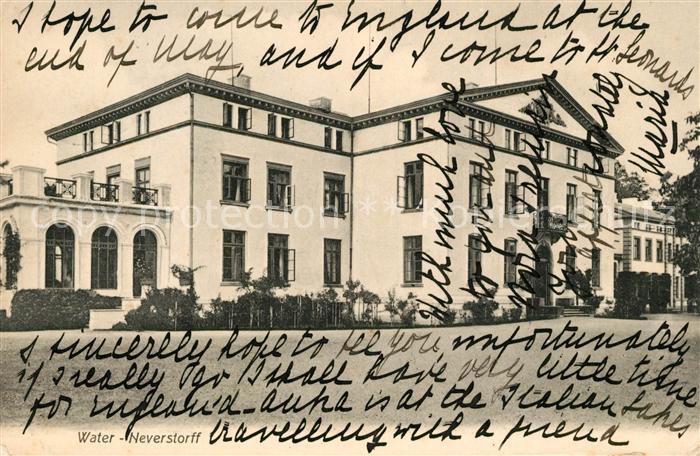 I hope to come to England at the
end of May, and if I come to St. Leonards
I sincerely hope to see you, unfortunately
if I really go I shall have very little time
for England - Anna is at the Italian Lakes
travelling with a friend
With much love
to you
Maria
Water - Neverstorff
copyright protection